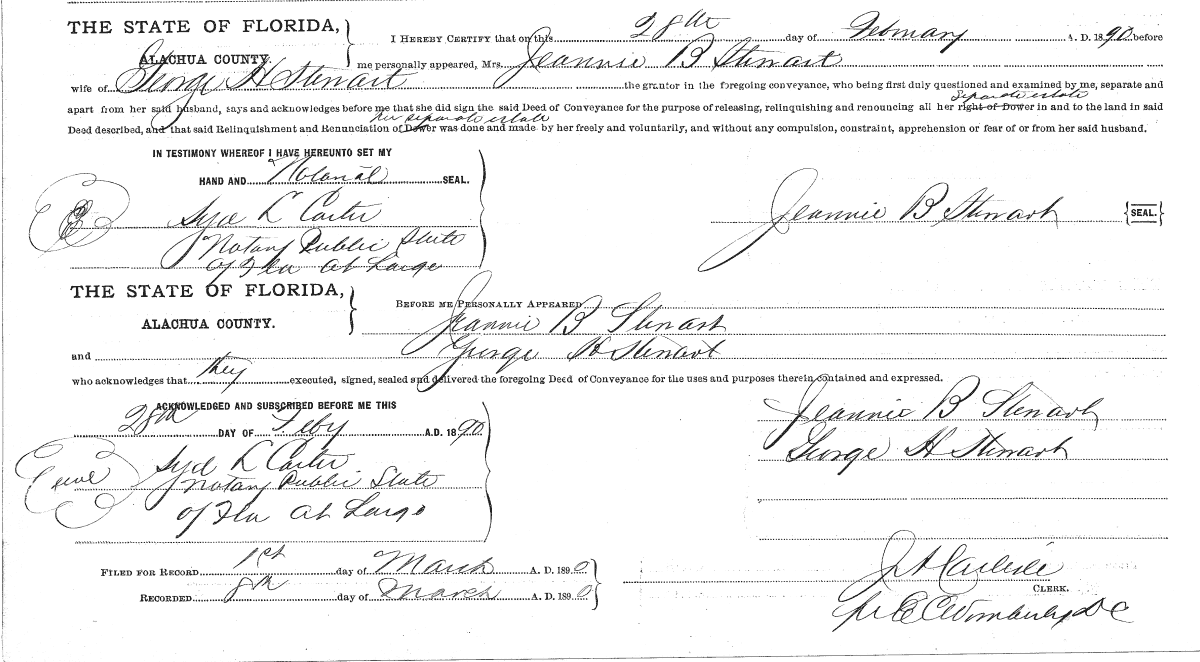 THE STATE OF FLORIDA,
ALACHUA COUNTY.
I HEREBY CERTIFY that on this 28th day of February A. D. 1890 before
me personally appeared, Mrs. Jeannie B Stewart
wife of George H Stewart the grantor in the foregoing conveyance, who being first duly questioned and examined by me, separate and
Separate estate
apart from her said husband, says and acknowledges before me that she did sign the said Deed of Conveyance for the purpose of releasing, relinquishing and renouncing all her right of Dower in and to the land in said
her separate estate
Deed described, and that said Relinquishment and Renunciation of Dower was done and made by her freely and voluntarily, and without any compulsion, constraint, apprehension or fear of or from her said husband.
IN TESTIMONY WHEREOF I HAVE HEREUNTO SET MY
HAND AND Notarial SEAL.
Syd L Carter
Notary Public State
of Fla At Large
Jeannie B Stewart {SEAL.}
THE STATE OF FLORIDA,
ALACHUA COUNTY.
BEFORE ME PERSONALLY APPEARED
Jeannie B Stewart
and George H Stewart
who acknowledges that they executed, signed, sealed and delivered the foregoing Deed of Conveyance for the uses and purposes therein contained and expressed.
ACKNOWLEDGED AND SUBSCRIBED BEFORE ME THIS
28th DAY OF Feby A.D. 1890
Syd L Carter
Notary Public State
of Fla At Large
Jeannie B Stewart
George H Stewart
FILED FOR RECORD 1st day of March A. D. 1890
RECORDED 8th day of March A. D. 1890
J A Carlisle
CLERK.
DC